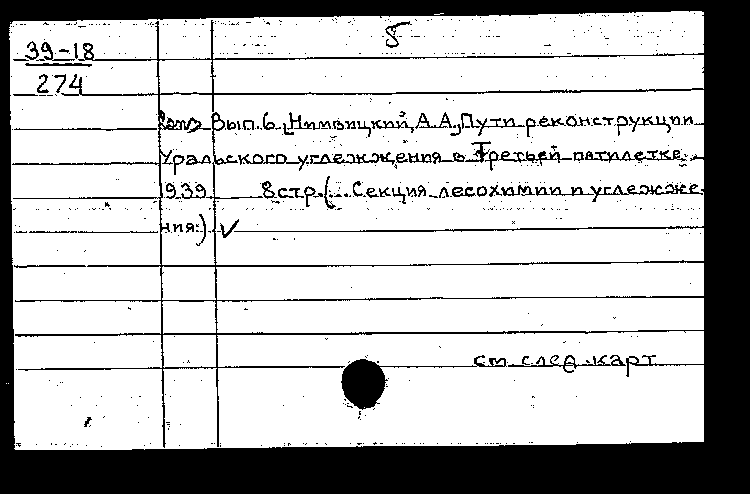 8
39-18
274
Вып. 6. [Нимвицкий, А.А.] Пути реконструкции
Уральского углежжения в Третьей пятилетке.
1939 8 стр. (... Секция лесохимии и углежже-
ния.) ✓
см. след. карт